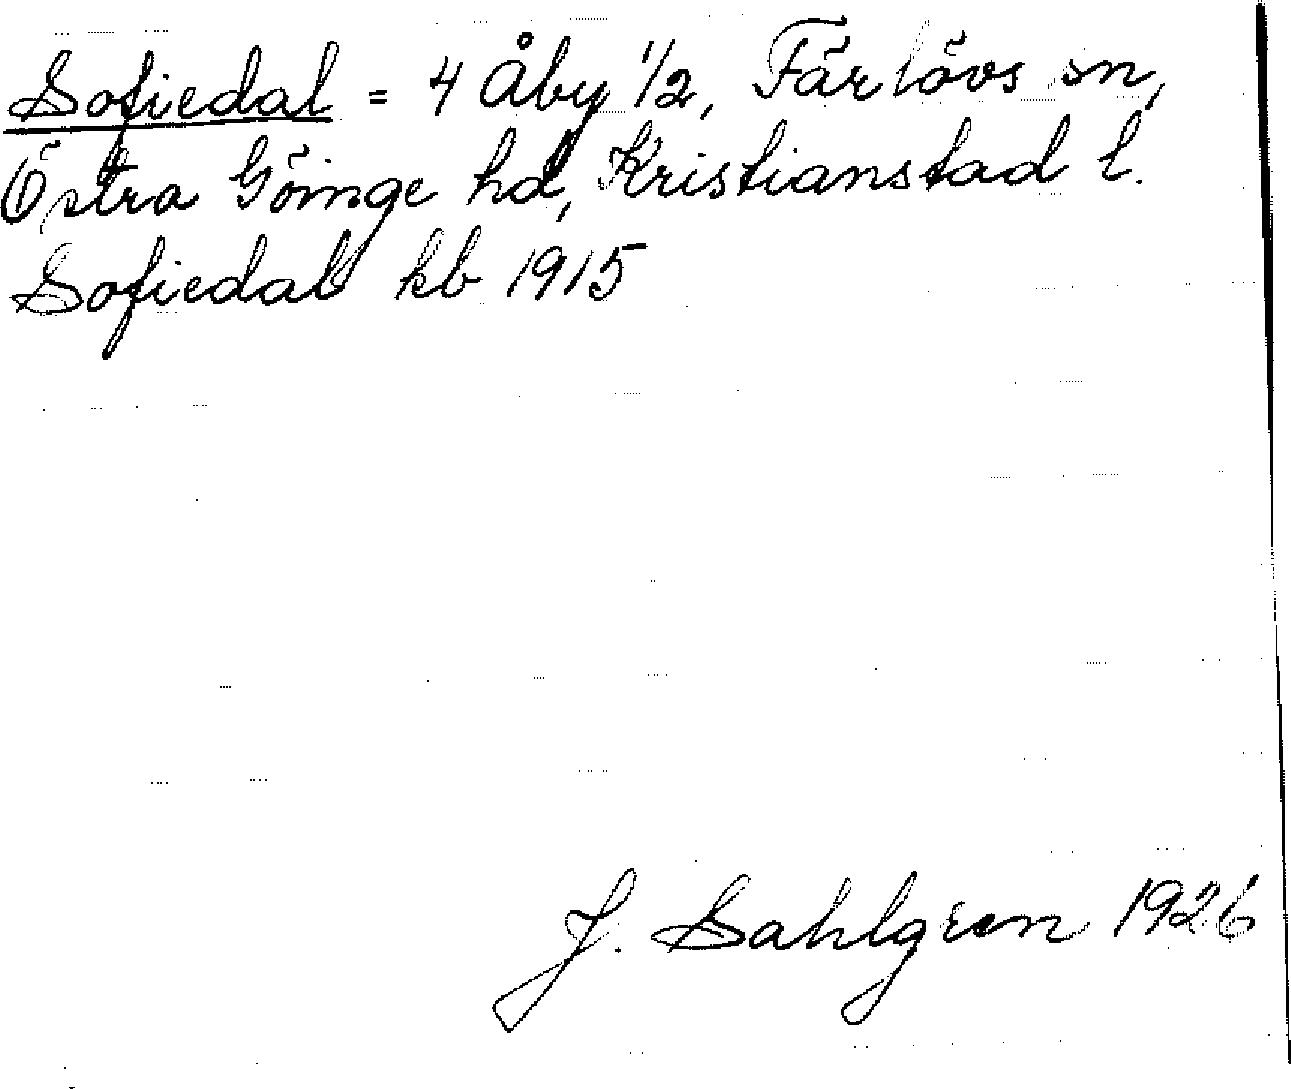 Sofiedal = 4 Åby 1/2, Färlövs sn,
Östra Göinge hd, Kristianstad l.
Sofiedal kb 1915
J. Sahlgren 1926